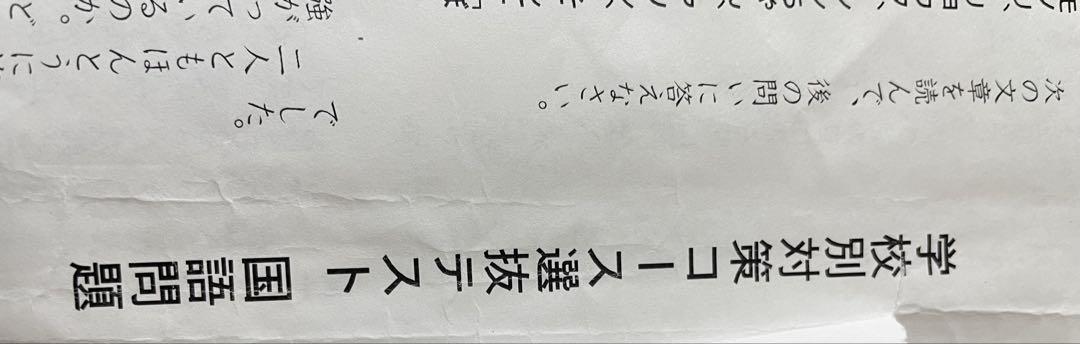 学校別対策コース選抜テスト 国語問題
次の文章を読んで、後の問いに答えなさい。
でした。
二人ともほんとうに
強がっているのか。ど